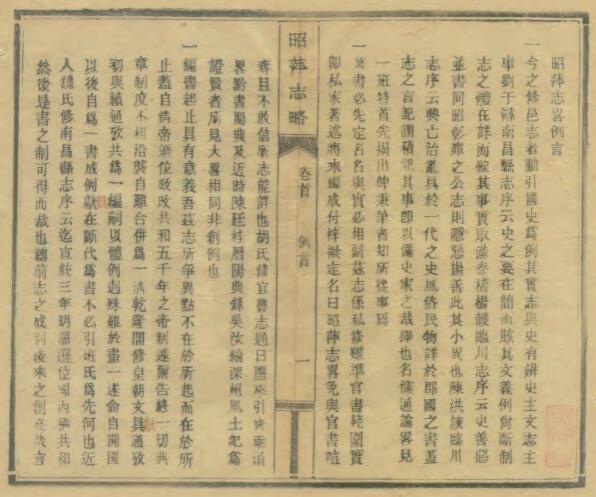 昭萍志畧例言
一今之修邑志者動引國史爲例其實志與史有辨史主文志主
事劉于潯南昌縣志序云史之要在簡而賅其文義例尙斷制
志之體在詳而確其事實取備參稽楊護臨川志序云史善惡
並書同昭彰癉之公志則隱惡揚善此其小異也陳洪諫臨川
志序云興亡治亂具於一代之史風俗民物詳於郡國之書蓋
志之言記謂積記其事卽以備史家之裁擇也名儒通論畧見
一班特首先揭出俾秉筆者知所從事焉
一著書必先定名名與實必相副茲志係私修雖準官書範圍實
卽私家著述將來編成付梓擬定名曰昭萍志畧免與官書暄
奪且不敢信所志能詳也胡氏修宜豐志題曰鹽乘引
畧黔書蜀典及近時陳廷桂歷陽典錄吳汝綸深州風土記爲
證賢者所見大畧相同非創例也
一編書起止具有意義吾茲志所爭異點不在於所起而在於所
止蓋自淸帝遜位政改共和五千年之帝制遽爾告終一切典
章制度不相沿襲自難合併爲一淸乾隆間修皇朝文獻通攷
初與續通攷共爲一編嗣以體例迥殊難於畫一遂命自開國
以後自爲一書成例猷在斷代爲書不必引班氏爲先河也近
人魏氏修南昌縣志序云迄宣統三年明淸遜位國內 共和
然後是書之制可得而裁也總前志之成別後來之創 哉言
昭萍志略
卷首
例言
一